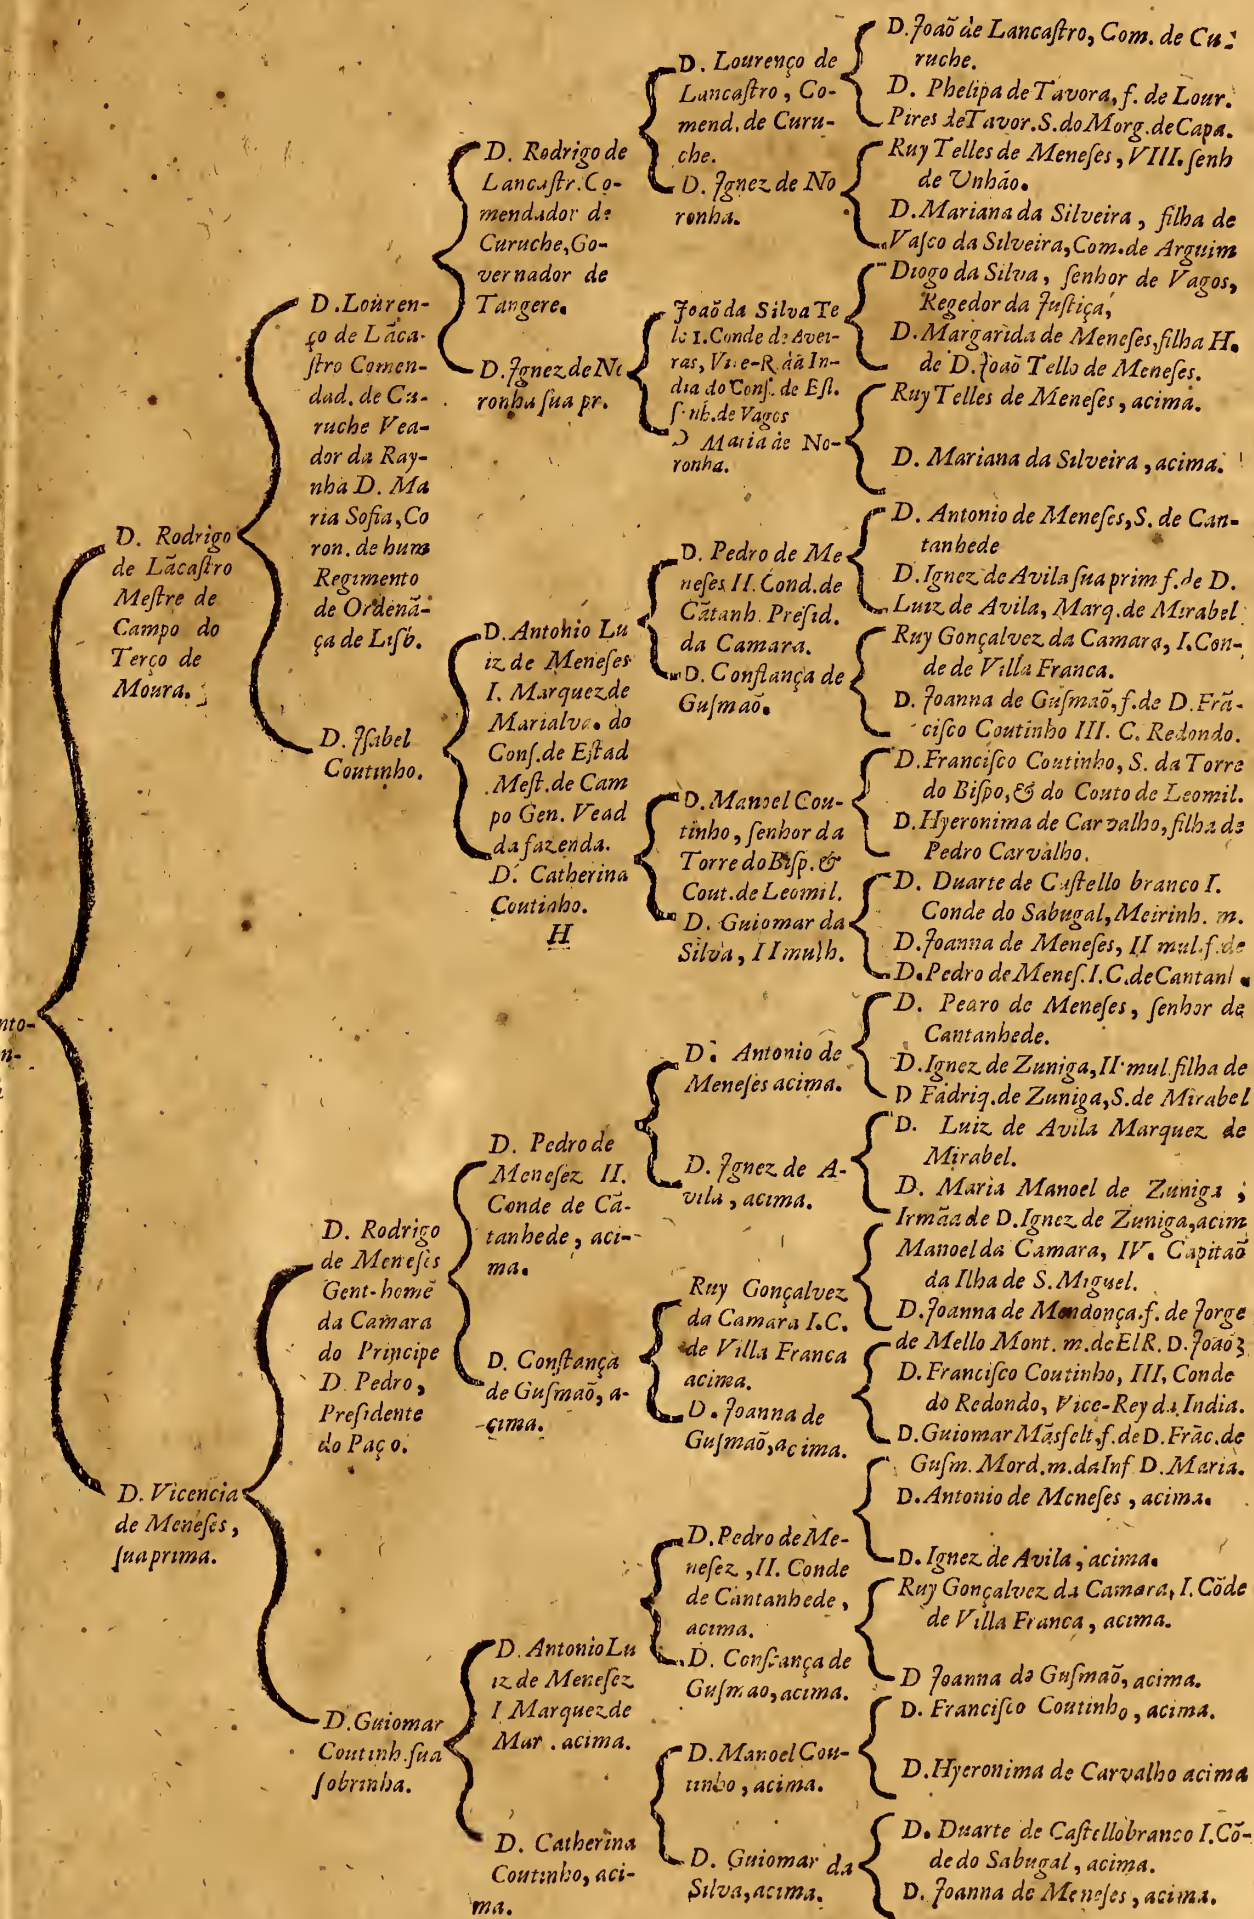 nto-
n-
D. Rodrigo
de Lãcaſtro
Meſtre de
Campo do
Terço de
Moura.
D. Vicencia
de Meneſes,
ſua prima.
D. Louren-
ço de Lãca-
ſtro Comen-
dad. de Cu-
ruche Vea-
dor da Ray-
nha D. Ma
ria Sofia, Co
ron. de hum
Regimento
de Ordenã-
ça de Lisb.
D. Iſabel
Coutinho.
D. Rodrigo
de Meneſes
Gent-homẽ
da Camara
do Principe
D. Pedro,
Preſidente
do Paço.
D. Guiomar
Coutinh. ſua
ſobrinha.
D. Rodrigo de
Lancaſtr. Co-
mendador de
Curuche, Go-
vernador de
Tangere.
D. Ignez de No
ronha ſua pr.
D. Antonio Lu
iz de Meneſes
I. Marquez de
Marialva. do
Conſ. de Eſtad
Meſt. de Cam
po Gen. Vead
da fazenda.
D. Catherina
Coutinho.
H
D. Pedro de
Meneſez II.
Conde de Cã-
tanhede, aci-
ma.
D. Conſtança
de Guſmaõ, a-
cima.
D. Antonio Lu
iz de Meneſez
I Marquez de
Mar. acima.
D. Catherina
Coutinho, aci-
ma.
D. Lourenço de
Lancaſtro, Co-
mend. de Curu-
che.
D. Ignez de No
ronha.
Joaõ da Silva Te
lo I. Conde de Avei-
ras, Vice-R. da In-
dia do Conſ. de Eſt.
ſenh. de Vagos
D Maria de No-
ronha.
D. Pedro de Me
neſes II. Cond. de
Cãtanh. Preſid.
da Camara.
D. Conſtança de
Guſmaõ.
D. Manoel Cou-
tinho, ſenhor da
Torre do Biſp. &
Cout. de Leomil.
D. Guiomar da
Silva, II mulh.
D. Antonio de
Meneſes acima.
D. Ignez de A-
vila, acima.
Ruy Gonçalvez
da Camara I.C.
de Villa Franca
acima.
D. Joanna de
Guſmaõ, acima.
D. Pedro de Me-
neſez, II. Conde
de Cantanhede,
acima.
D. Conſtança de
Guſmao, acima.
D. Manoel Cou-
tinho, acima.
D. Guiomar da
Silva, acima.
D. Joaõ de Lancaſtro, Com. de Cu-
ruche.
D. Phelipa de Tavora, f. de Lour.
Pires de Tavor. S. do Morg. de Capa.
Ruy Telles de Meneſes, VIII. ſenh
de Unhão.
D. Mariana da Silveira, filha de
Vaſco da Silveira, Com. de Arguim
Diogo da Silva, ſenhor de Vagos,
Regedor da Juſtiça,
D. Margarida de Meneſes, filha H.
de D. Joaõ Tello de Meneſes.
Ruy Telles de Meneſes, acima.
D. Mariana da Silveira, acima.
D. Antonio de Meneſes, S. de Can-
tanhede
D. Ignez de Avila ſua prim f. de D.
Luiz de Avila, Marq. de Mirabel
Ruy Gonçalvez da Camara, I. Con-
de de Villa Franca.
D. Joanna de Guſmaõ, f. de D. Frã-
ciſco Coutinho III. C. Redondo.
D. Franciſco Coutinho, S. da Torre
do Biſpo, & do Couto de Leomil.
D. Hyeronima de Carvalho, filha de
Pedro Carvalho.
D. Duarte de Caſtello branco I.
Conde do Sabugal, Meirinh. m.
D. Joanna de Meneſes, II mul. f. de
D. Pedro de Meneſ. I. C. de Cantanh.
D. Pedro de Meneſes, ſenhor de
Cantanhede.
D. Ignez de Zuniga, II mul. filha de
D Fadriq. de Zuniga, S. de Mirabel
D. Luiz de Avila Marquez de
Mirabel.
D. Maria Manoel de Zuniga,
Irmãa de D. Ignez de Zuniga, acim
Manoel da Camara, IV. Capitaõ
da Ilha de S. Miguel.
D. Joanna de Mendonça. f. de Jorge
de Mello Mont. m. de ElR. D. Joaõ 3
D. Franciſco Coutinho, III. Conde
do Redondo, Vice-Rey da India.
D. Guiomar Mãsfelt, f. de D. Frãc. de
Guſm. Mord. m. da Inf D. Maria.
D. Antonio de Meneſes, acima.
D. Ignez de Avila, acima.
Ruy Gonçalvez da Camara, I. Cõde
de Villa Franca, acima.
D Joanna de Guſmaõ, acima.
D. Franciſco Coutinho, acima.
D. Hyeronima de Carvalho acima
D. Duarte de Caſtellobranco I. Cõ-
de do Sabugal, acima.
D. Joanna de Meneſes, acima.